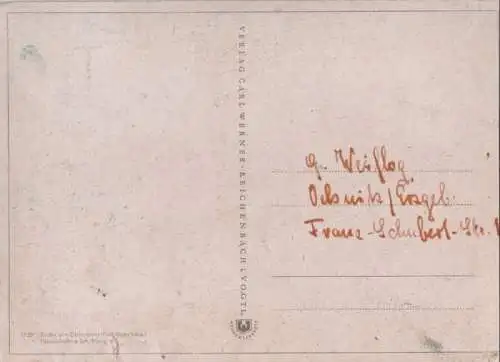 VERLAG CARL WERNER · REICHENBACH I. VOGTL.
G. Weiflog
Oelsnitz/Erzgeb.
Franz-Schubert-Str.